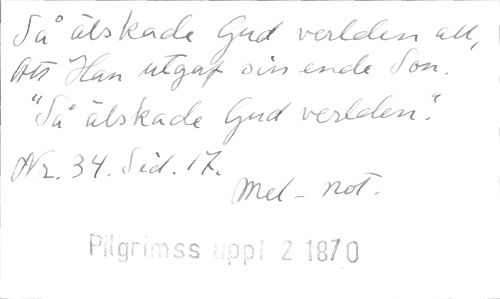 Så älskade Gud verlden all,
Att Han utgaf sin ende Son.
"Så älskade Gud verlden."
Nr. 34. Sid. 17.
Mel - not.
Pilgrimss uppl 2 1870